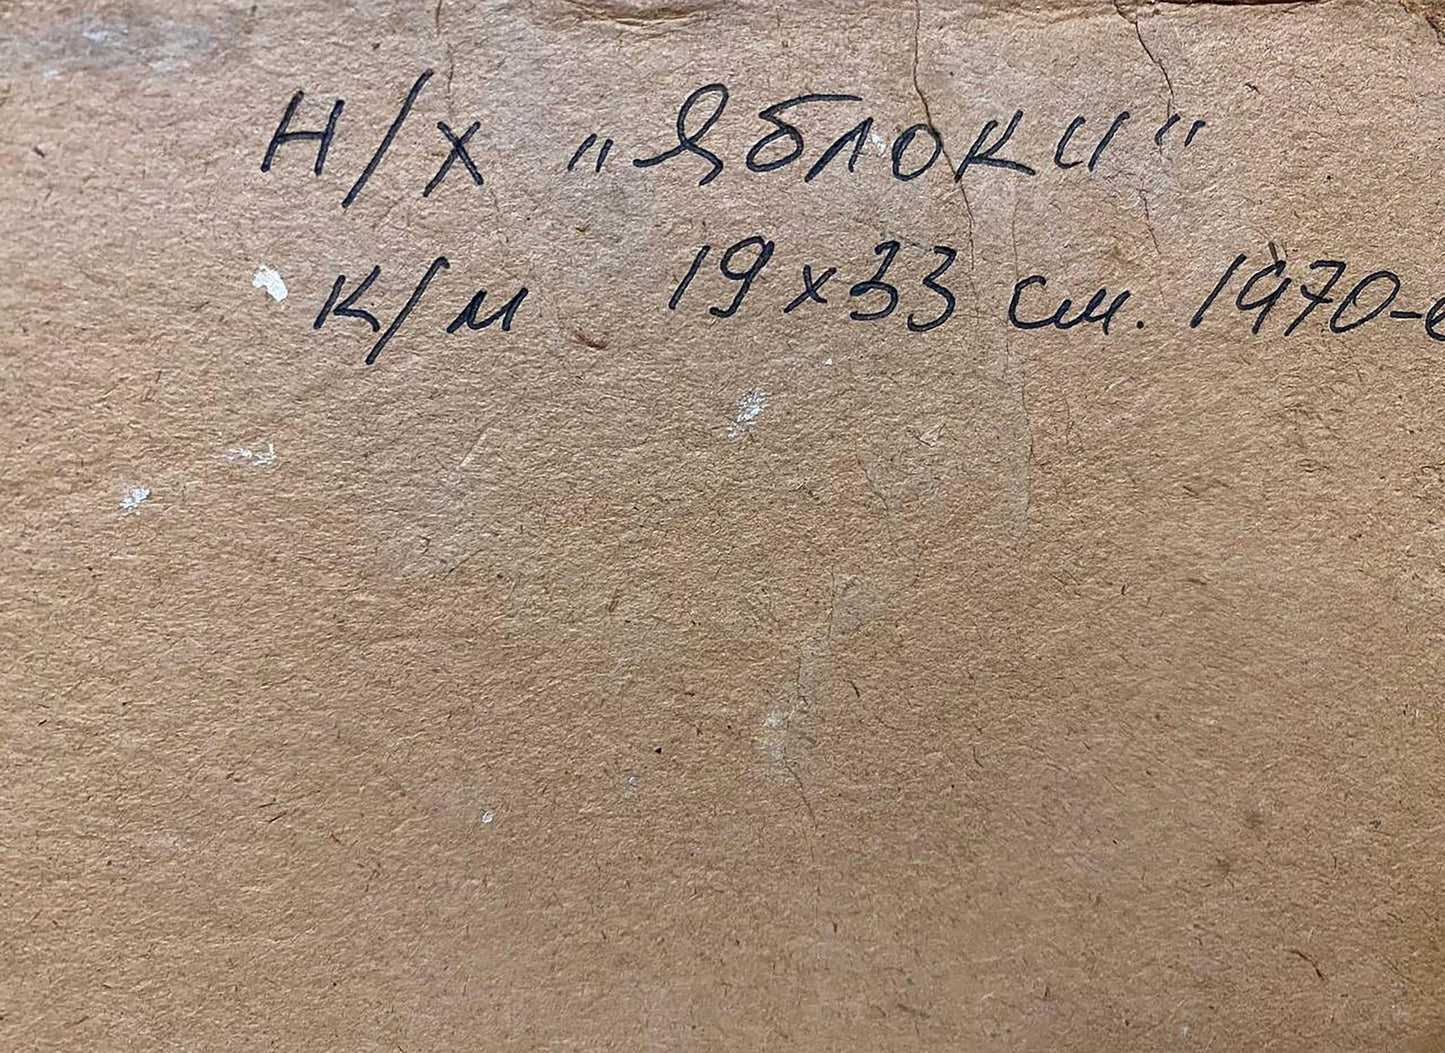 Н/Х „Яблоки“
К/М 19х33 см. 1970-е